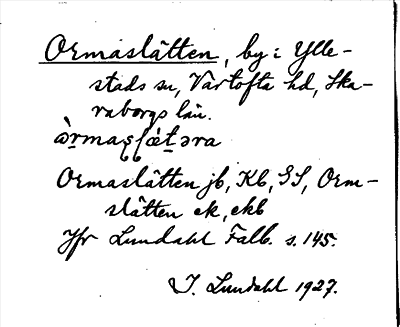 Ormaslätten, by i Ylle-
stads sn, Vartofta hd, Ska-
raborgs län.
Ormaslätten jb, Kb, GS, Orm-
slätten ek, ekb
Jfr Lundahl Falb. s. 145.
I. Lundahl 1927.